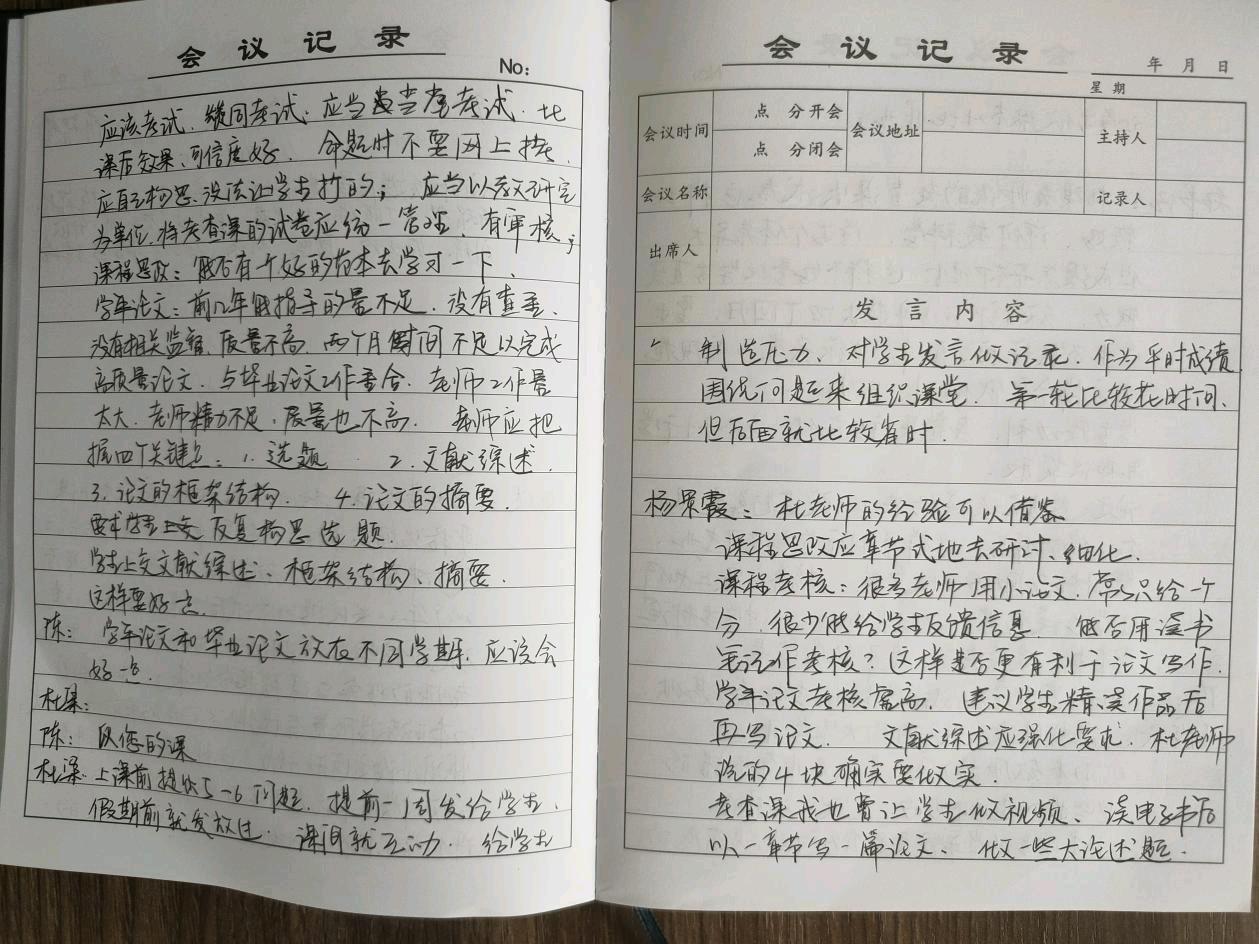 会议记录
No:
应该考试、缓同考试：应当当堂考试．比
课后效果、可信度好．命题时不要网上找，
应自己构思、没法让学生打的；应当以教研室
为单位，将考查课的试卷应统一管理，有审核；
课程思政：能否有一个好的范本去学习一下．
学年论文：前几年能指导的量不足．没有查重、
没有相关监督，质量不高．两个月时间不足以完成
高质量论文．与毕业论文工作重合．老师工作量
太大．老师精力不足，质量也不高．老师应把
握四个关键点：1.选题 2.文献综述．
3.论文的框架结构． 4.论文的摘要．
要求学生上交反复构思选题．
学生上交文献综述、框架结构、摘要．
这样要好点
陈：学年论文和毕业论文放在不同学期．应该会
好一点．
杜梁：
陈：您的课
杜梁：上课前提供5-6问题．提前一周发给学生．
假期前就发放过．课间就互动．给学生
会议记录
年 月 日
星期
会议时间 点 分开会 会议地址 主持人
点 分闭会
会议名称 记录人
出席人
发言内容
制造压力、对学生发言做记录．作为平时成绩
围绕问题来组织课堂．第一轮比较花时间．
但后面就比较省时．
杨景霞：杜老师的经验可以借鉴
课程思政应章节式地去研讨、细化．
课程考核：很多老师用小论文．常常只给一个
分．很少能给学生反馈信息．能否用读书
笔记作考核？这样是否更有利于论文写作．
学年论文考核需高．建议学生精读作品后
再写论文．文献综述应强化要求．杜老师
说的4块确实要做实．
考查课我也曾让学生做视频、读电子书后
以一章节写一篇论文、做一些大论述题．